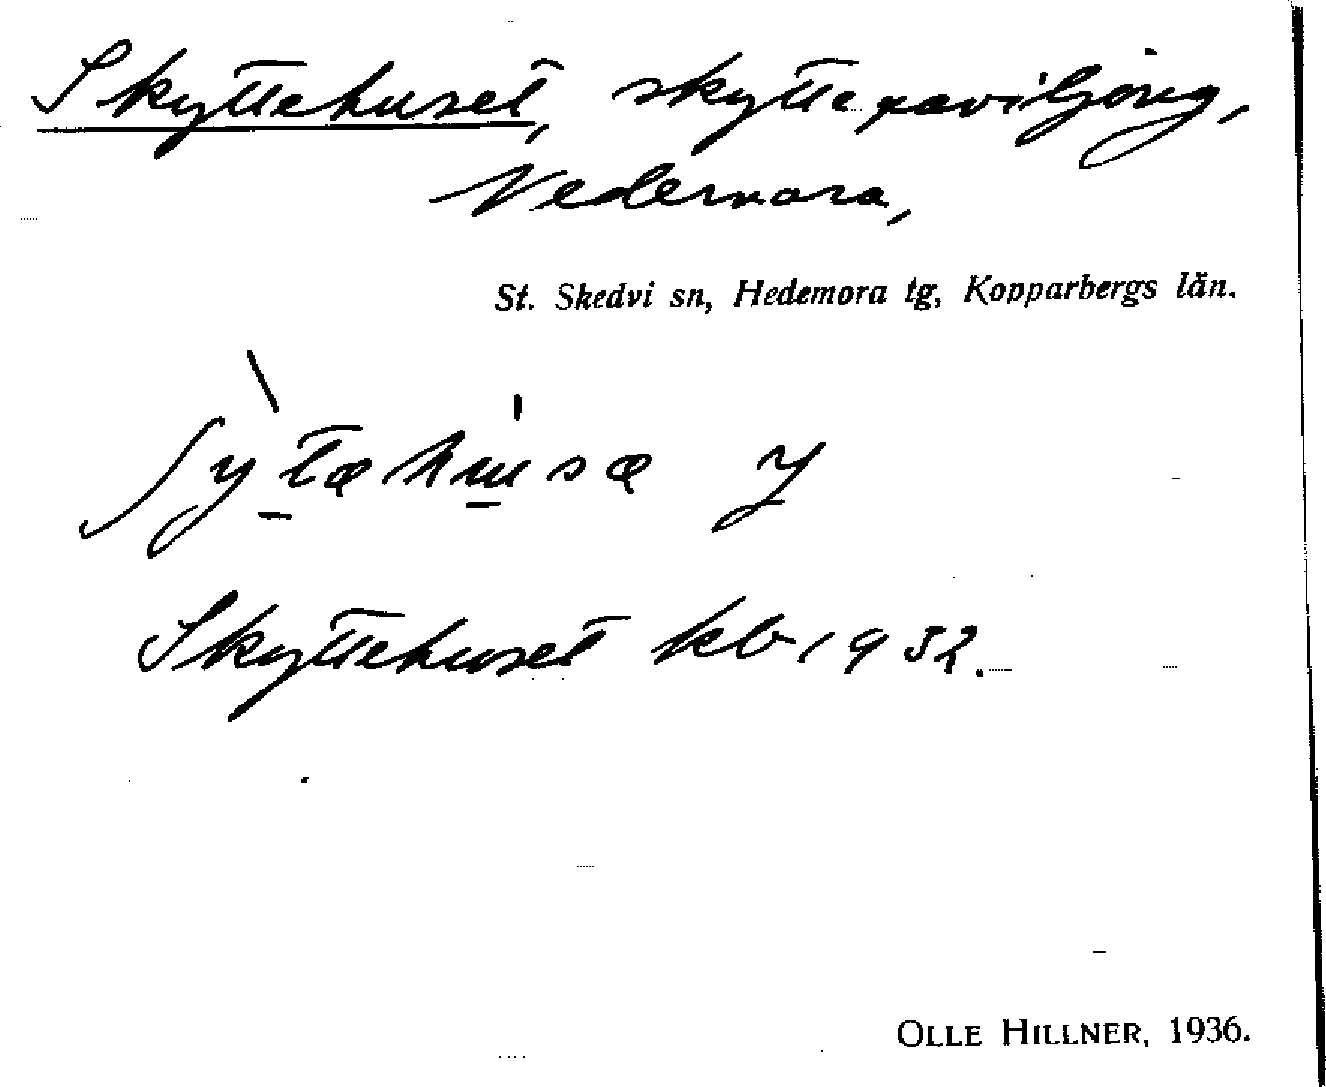 Skyttehuset, skyttepaviljong,
Nedernora,
St. Skedvi sn, Hedemora tg, Kopparbergs län.
Skyttehuset kb 1932.
OLLE HILLNER, 1936.